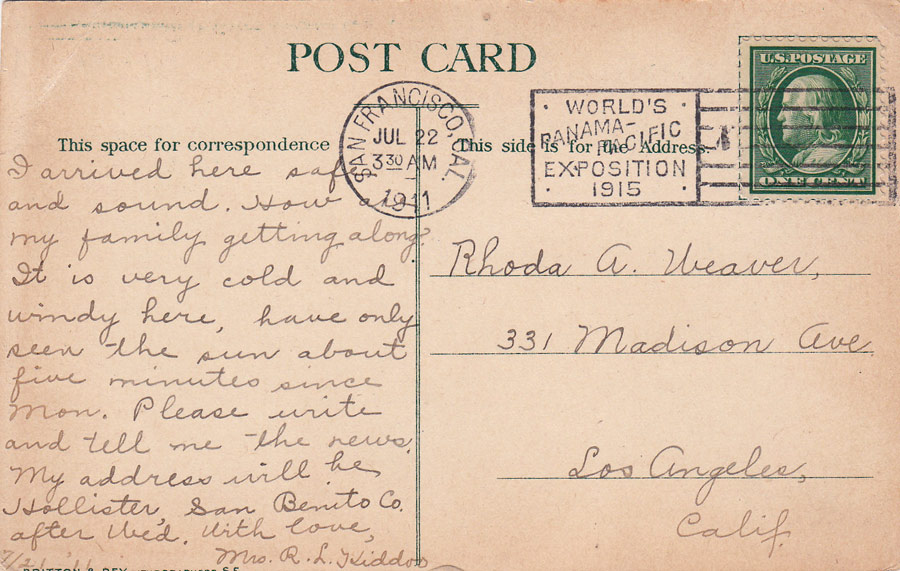 POST CARD
U.S. POSTAGE
ONE CENT
SAN FRANCISCO, CAL.
JUL 22
3 30 AM
1911
WORLD'S
PANAMA-
PACIFIC
EXPOSITION
1915
This space for correspondence
This side is for the Address.
I arrived here safe
and sound. How are
my family getting along?
It is very cold and
windy here, have only
seen the sun about
five minutes since
Mon. Please write
and tell me the news.
My address will be
Hollister, San Benito Co.
after Wed. With love,
Mrs. R. L. Kiddoo
7/21/11
Rhoda A. Weaver,
331 Madison Ave
Los Angeles,
Calif.
BRITTON & REY
S.F.